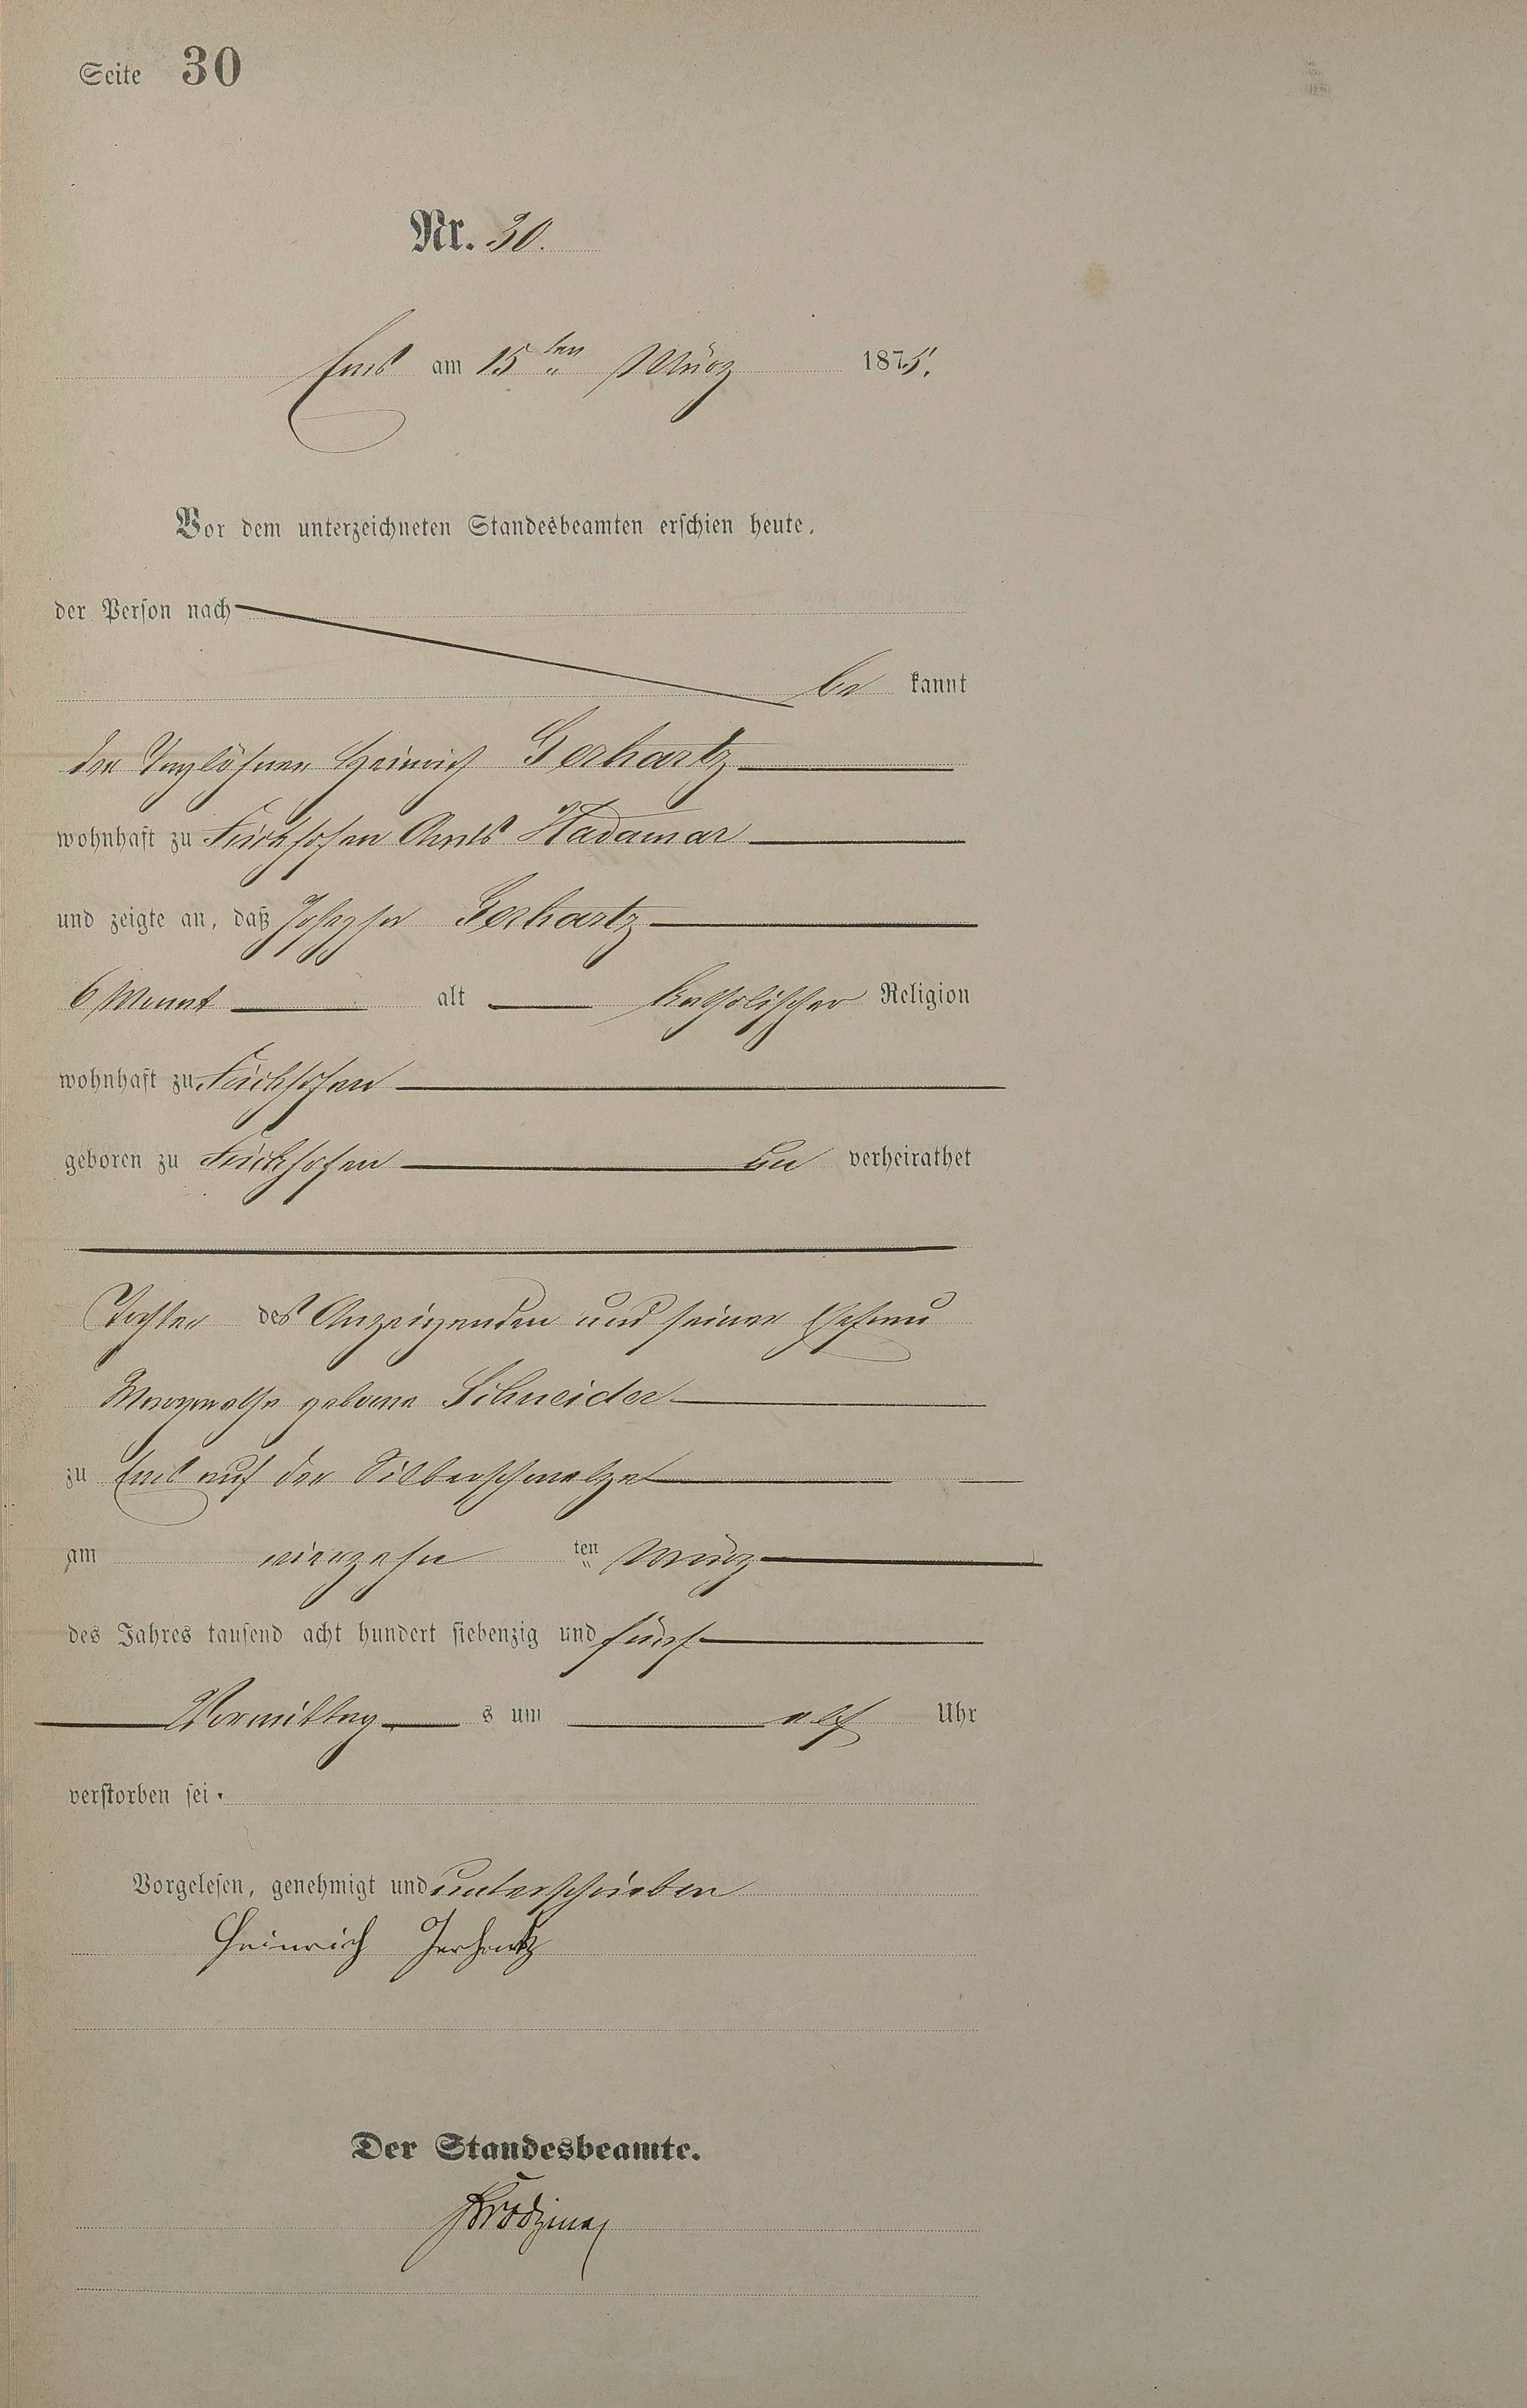 Seite 30
Nr. 30.
Ems am 15 ten März 1875.
Vor dem unterzeichneten Standesbeamten erschien heute,
der Person nach
be kannt
der Taglöhner Heinrich Gerhartz
wohnhaft zu Frickhofen Amts Hadamar
und zeigte an, daß Josepha Gerhartz
6 Monat alt katholischer Religion
wohnhaft zu Frickhofen
geboren zu Frickhofen un verheirathet
Tochter des Anzeigenden und seiner Ehefrau
Margarethe geborne Schneider
zu Ems auf der Silberschmelze
am vierzehn ten März
des Jahres tausend acht hundert siebenzig und fünf
Vormittag s um elf Uhr
verstorben sei.
Vorgelesen, genehmigt und unterschrieben
Heinrich Gerhartz
Der Standesbeamte.